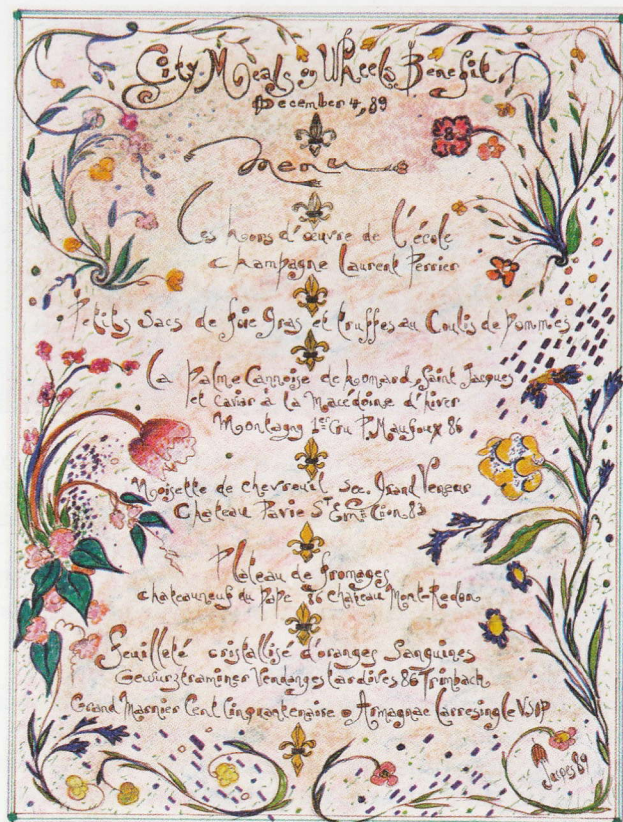 City Meals on Wheels Benefit
December 4, 89
Menu
Les hors d'œuvre de l'école
Champagne Laurent Perrier
Petits Sacs de foie Gras et truffes au Coulis de Pommes
La Palme Cannoise de homard, Saint Jacques
et caviar à la Macedoine d'hiver
Montagny 1er Cru P. Maufoux 86
Noisette de chevreuil sce. Grand Veneur
Chateau Pavie St Em: Lion 83
Plateau de fromages
Chateauneuf du Pape 86 Chateau Mont-Redon
Feuilleté cristallisé d'oranges Sanguines
Gewurztraminer Vendanges tardives 86 Trimbach
Grand Marnier Cent Cinquantenaire Armagnac Larresingle VSOP
89